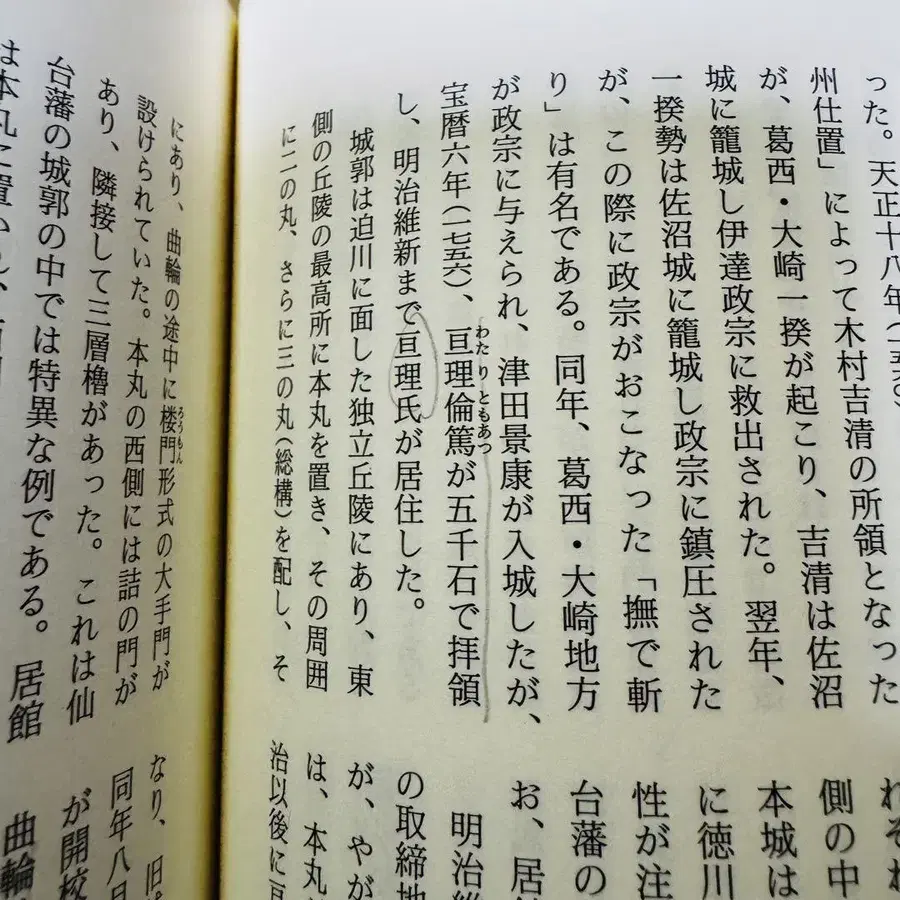 った。天正十八年(一五九〇)
州仕置」によって木村吉清の所領となった
が、葛西・大崎一揆が起こり、吉清は佐沼
城に籠城し伊達政宗に救出された。翌年、
一揆勢は佐沼城に籠城し政宗に鎮圧された
が、この際に政宗がおこなった「撫で斬
り」は有名である。同年、葛西・大崎地方
が政宗に与えられ、津田景康が入城したが、
わたり ともあつ
宝暦六年(一七五六)、亘理倫篤が五千石で拝領
し、明治維新まで亘理氏が居住した。
城郭は迫川に面した独立丘陵にあり、東
側の丘陵の最高所に本丸を置き、その周囲
に二の丸、さらに三の丸(総構)を配し、そ
側の中
本城は
に徳川
性が注
台藩の
お、居
明治
の取締地
が、やが
は、本丸
治以後に
ろうもん
にあり、曲輪の途中に楼門形式の大手門が
設けられていた。本丸の西側には詰の門が
あり、隣接して三層櫓があった。これは仙
台藩の城郭の中では特異な例である。居館
は本丸に置かれ、
なり、旧
同年八
が開校
曲輪